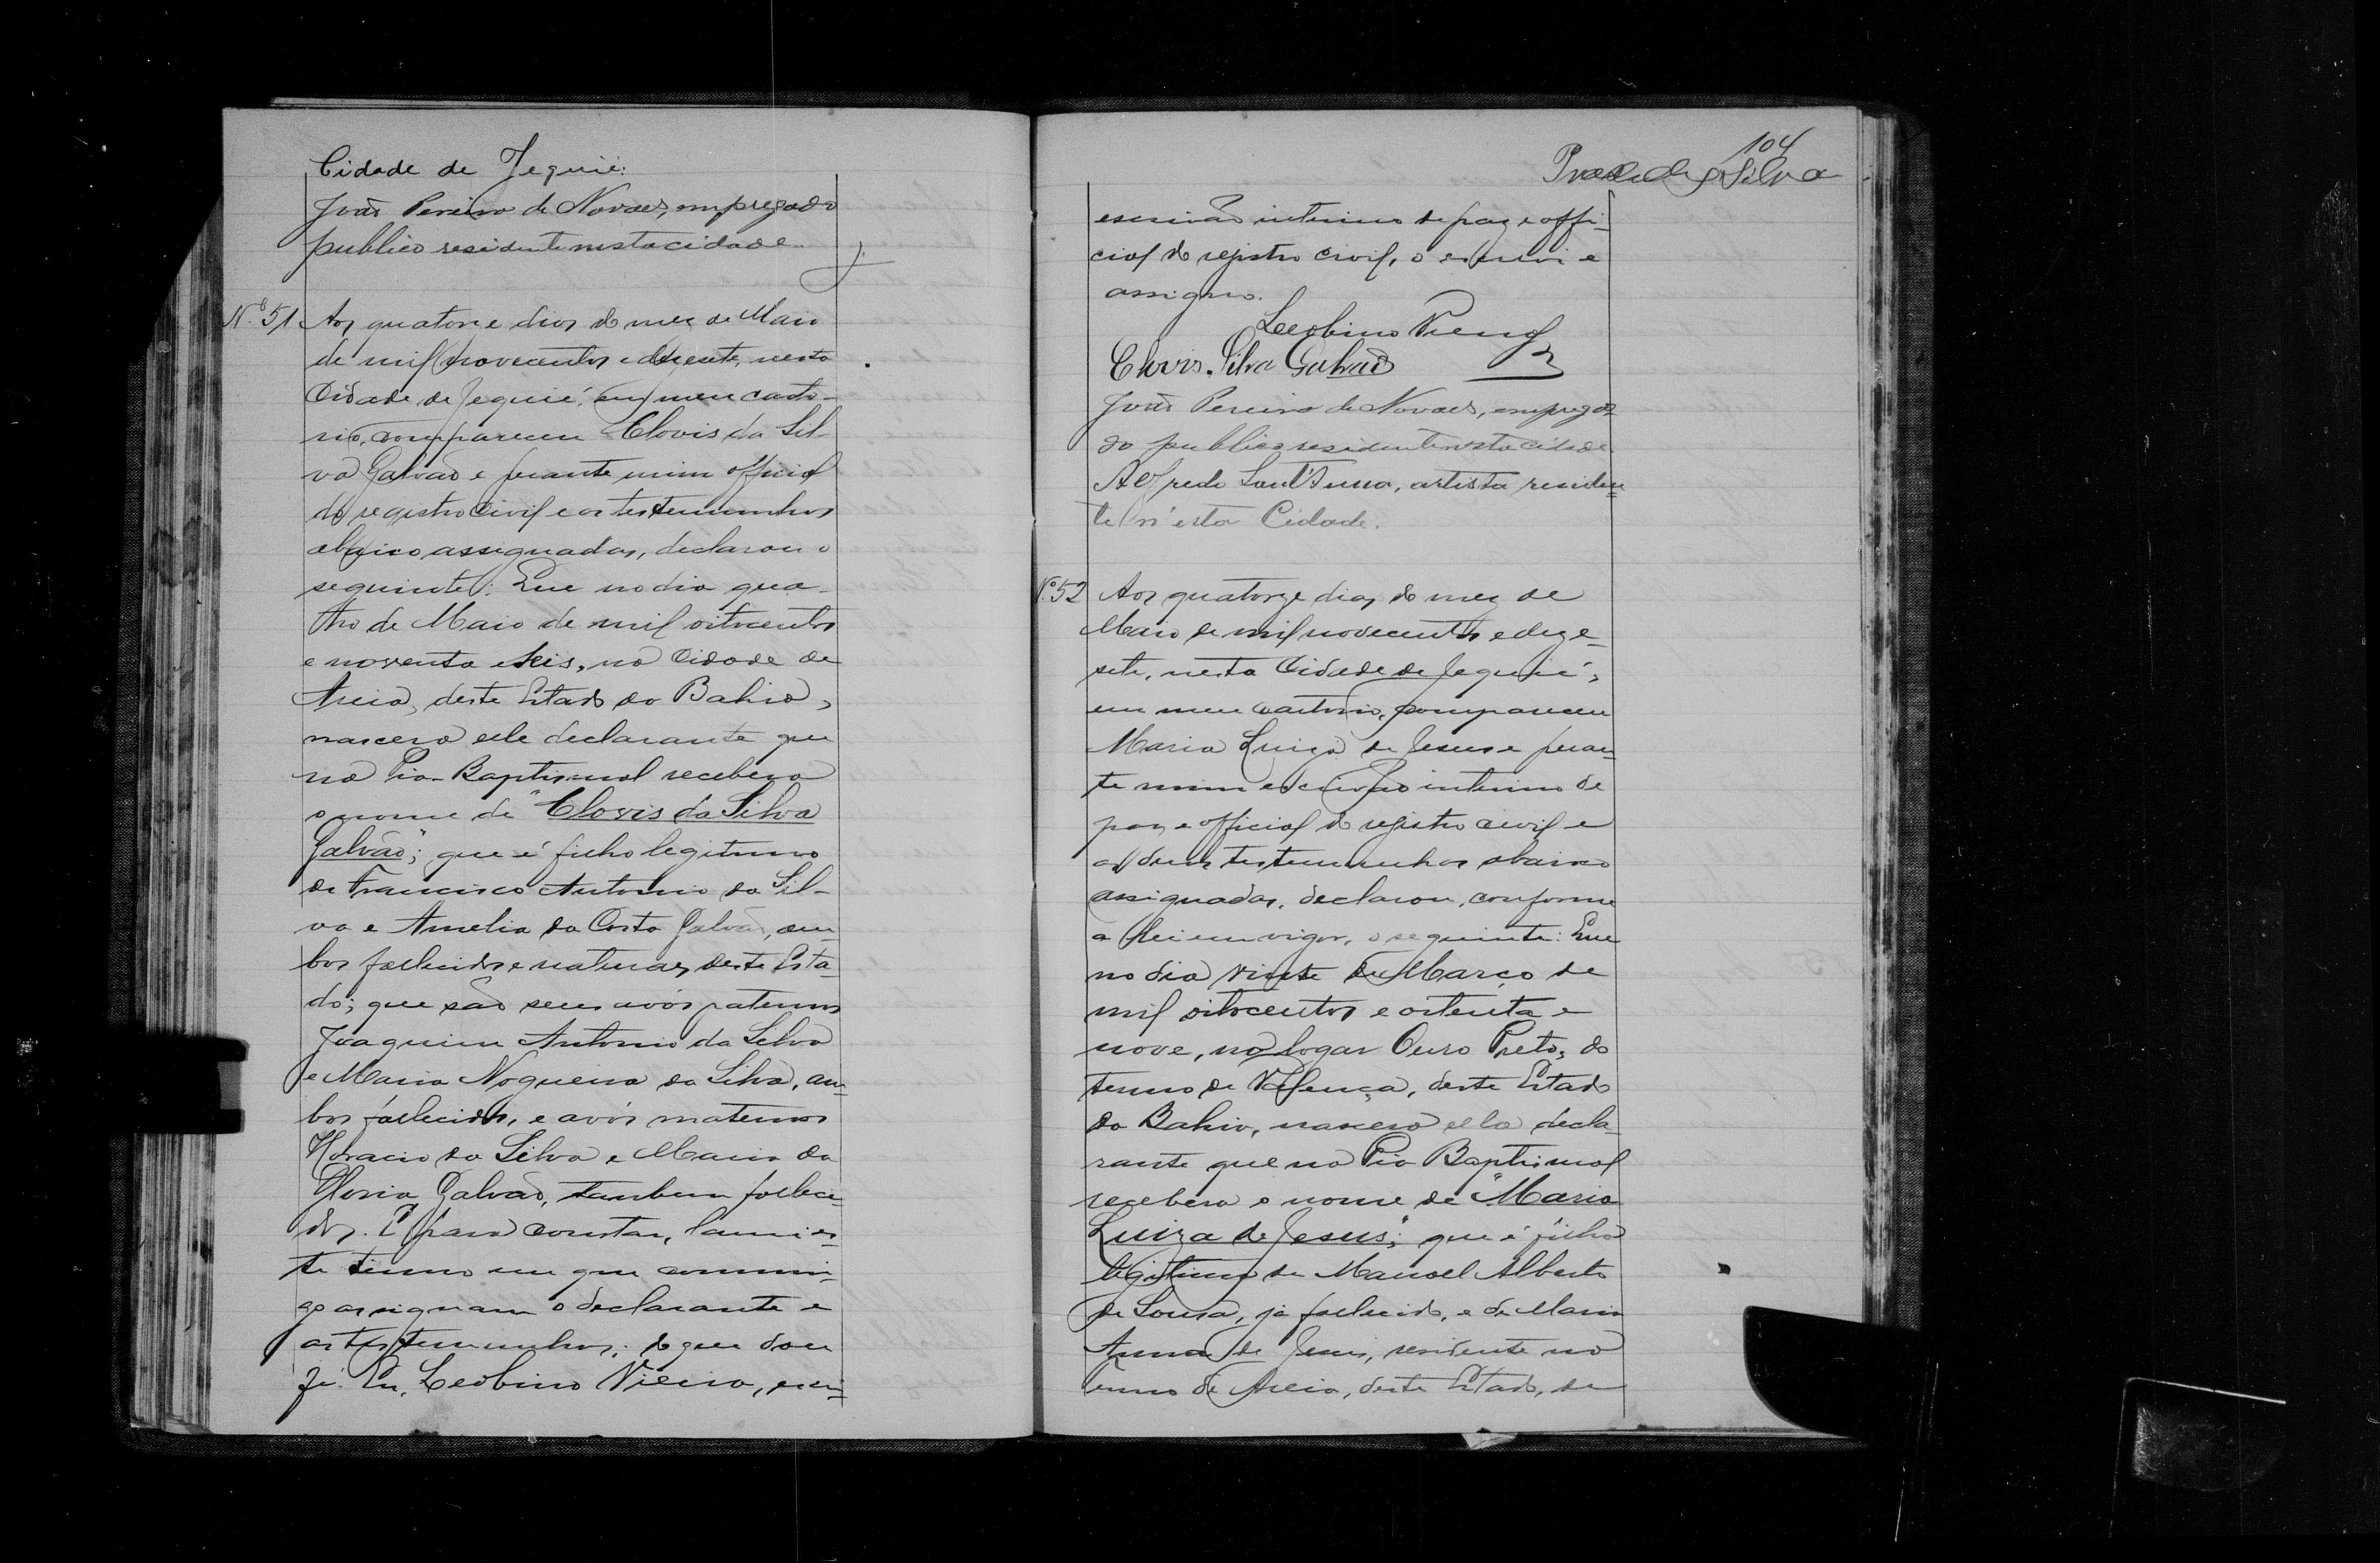 Cidade de Jequié:
João Pereira de Novaes, empregado
publico residente nesta cidade.
Nº 51
Aos quatorze dias do mez de Maio
de mil novecentos e dezesete, nesta
Cidade de Jequié, em meu carto-
rio, compareceu Clovis da Sil-
va Galvão e perante mim official
do registro civil e as testemunhas
abaixo assignadas, declarou o
seguinte: Que no dia qua-
tro de Maio de mil oitocentos
e noventa e seis, na Cidade de
Areia, deste Estado da Bahia,
nascera elle declarante que
na Pia Baptismal recebera
o nome de "Clovis da Silva
Galvão"; que é filho legitimo
de Francisco Antonio da Sil-
va e Amelia da Costa Galvão, am-
bos fallecidos e naturaes deste Esta
do; que são seus avós paternos
Joaquim Antonio da Silva
e Maria Nogueira da Silva, am-
bos fallecidos, e avós maternos
Horacio da Silva e Maria da
Gloria Galvão, tambem falleci-
dos. E para constar, lavrei es-
te termo em que commi-
go assignam o declarante e
as testemunhas; do que dou
fé. Eu, Leobino Vieira, escri-
104
escrivão interino de paz e offi-
cial do registro civil, o escrevi e
assigno.
Leobino Vieira
Clovis. Silva Galvão
João Pereira de Novaes, emprega-
do publico residente nesta cidade
Alfredo Sant'Anna, artista residen-
te n'esta Cidade.
Nº 52
Aos quatorze dias do mez de
Maio de mil novecentos e deze-
sete, nesta Cidade de Jequié,
em meu cartorio, compareceu
Maria Luiza de Jesus e peran-
te mim escrivão interino de
paz e official do registro civil e
as duas testemunhas abaixo
assignadas, declarou, conforme
a lei em vigor, o seguinte: Que
no dia vinte de Março de
mil oitocentos e oitenta e
nove, no logar Ouro Preto, do
termo de Valença, deste Estado
da Bahia, nascera ella decla-
rante que na Pia Baptismal
recebera o nome de "Maria
Luiza de Jesus"; que é filha
legitima de Manoel Alberto
de Souza, já fallecido, e de Maria
Anna de Jesus, residente no
termo de Areia, deste Estado, de